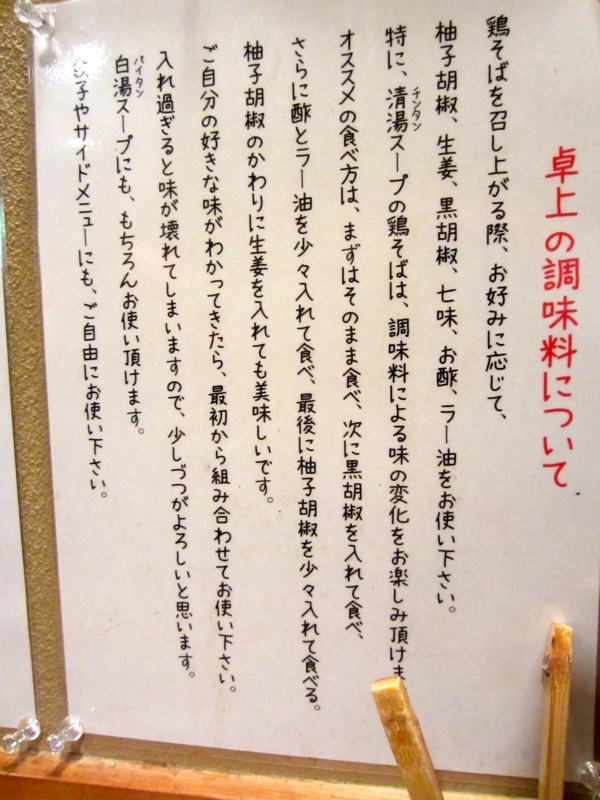 卓上の調味料について
鶏そばを召し上がる際、お好みに応じて、
柚子胡椒、生姜、黒胡椒、七味、お酢、ラー油をお使い下さい。
特に、清湯スープの鶏そばは、調味料による味の変化をお楽しみ頂けま
チンタン
オススメの食べ方は、まずはそのまま食べ、次に黒胡椒を入れて食べ、
さらに酢とラー油を少々入れて食べ、最後に柚子胡椒を少々入れて食べる。
柚子胡椒のかわりに生姜を入れても美味しいです。
ご自分の好きな味がわかってきたら、最初から組み合わせてお使い下さい。
入れ過ぎると味が壊れてしまいますので、少しづつがよろしいと思います。
白湯スープにも、もちろんお使い頂けます。
パイタン
子やサイドメニューにも、ご自由にお使い下さい。